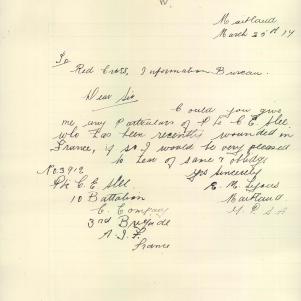 Maitland
March 23rd 17
To
Red Cross, Information Bureau.
Dear Sir
Could you give
me any Particulars of Pte C. E. Slee
who has been recently wounded in
France, if so I would be very pleased
to hear of same & oblige
Yrs Sincerely
No 3912
Pte C. E. Slee
10 Battalion
C. Company
3rd Brigade
A. I. F.
France
E. M. Lyons
Maitland
Y. P. S A